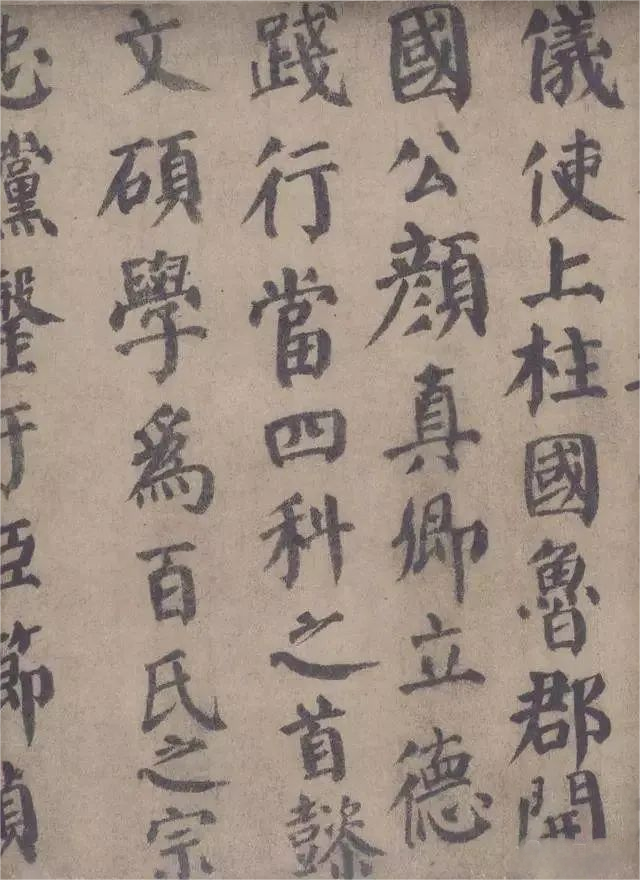 儀使上柱國魯郡開
國公顏真卿立德
踐行當四科之首懿
文碩學為百氏之宗
忠黨罄于臣節貞